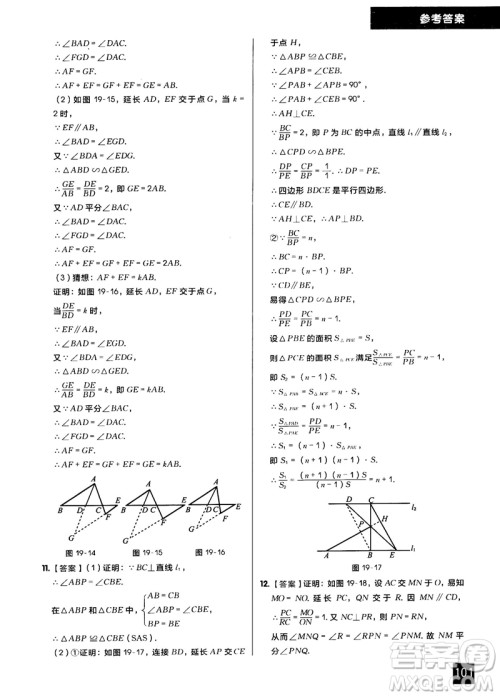 参考答案
∴ ∠BAD = ∠DAC.
∴ ∠FGD = ∠DAC.
∴ AF = GF.
∴ AF + EF = GF + EF = GE = AB.
(2) 如图 19-15, 延长 AD, EF 交于点 G, 当 k =
2时,
∵ EF∥AB,
∴ ∠BAD = ∠EGD.
又∵ ∠BDA = ∠EDG,
∴ △ABD∽△GED.
∴ GE/AB = DE/BD = 2, 即 GE = 2AB.
又∵ AD 平分∠BAC,
∴ ∠BAD = ∠DAC.
∴ ∠FGD = ∠DAC.
∴ AF = GF.
∴ AF + EF = GF + EF = GE = 2AB.
(3) 猜想: AF + EF = kAB.
证明: 如图 19-16, 延长 AD, EF 交于点 G,
当 DE/BD = k 时,
∵ EF∥AB,
∴ ∠BAD = ∠EGD.
又∵ ∠BDA = ∠EDG,
∴ △ABD∽△GED.
∴ GE/AB = DE/BD = k, 即 GE = kAB.
又∵ AD 平分∠BAC,
∴ ∠BAD = ∠DAC.
∴ ∠FGD = ∠DAC.
∴ AF = GF.
∴ AF + EF = GF + EF = GE = kAB.
A A A
B D C E F G B D C E F G B D C E F G
图 19-14 图 19-15 图 19-16
11. 【答案】(1) 证明: ∵ BC⊥直线 l₁,
∴ ∠ABP = ∠CBE.
在△ABP 和△CBE 中, { AB = CB ∠ABP = ∠CBE BP = BE
∴ △ABP≌△CBE (SAS).
(2) ①证明: 如图 19-17, 连接 BD, 延长 AP 交 CE
于点 H,
∵ △ABP≌△CBE,
∴ ∠PAB = ∠ECB.
∴ ∠PAB + ∠AEC = ∠ECB + ∠AEC = 90°.
∴ AH⊥CE.
∵ BC/BP = 2, 即 P 为 BC 的中点, 直线 l₁∥直线 l₂,
∴ △CPD∽△BPE.
∴ DP/PE = CP/BP = 1/1. ∴ DP = PE.
∴ 四边形 BDCE 是平行四边形.
∴ CE∥BD.
∵ AH⊥CE, ∴ AP⊥BD.
②∵ BC/BP = n,
∴ BC = n·BP.
∴ CP = (n-1)·BP.
∵ CD∥BE,
易得△CPD∽△BPE.
∴ PD/PE = PC/PB = n-1.
设△PBE 的面积 S△PBE = S,
则△PCE 的面积 S△PCE 满足 S△PCE/S = PC/PB = n-1,
即 S₂ = (n-1)S.
∵ S△PAB = S△BCE = n·S,
∴ S△PAE = (n+1)·S.
∵ S△PAD/S△PAE = PD/PE = n-1,
∴ S₁ = (n-1)·S△PAE,
即 S₁ = (n+1)(n-1)·S.
∴ S₁/S₂ = (n+1)(n-1)S/(n-1)S = n+1.
D C l₂
P H
A B E l₁
图 19-17
12. 【答案】证明: 如图 19-18, 设 AC 交 MN 于 O, 易知
MO = NO. 延长 PC, QN 交于点 R,
∴ PC/RC = MO/ON = 1. 又 NC⊥PR, 所以 PN = RN,
从而∠MNQ = ∠R = ∠RPN = ∠MNP.
101